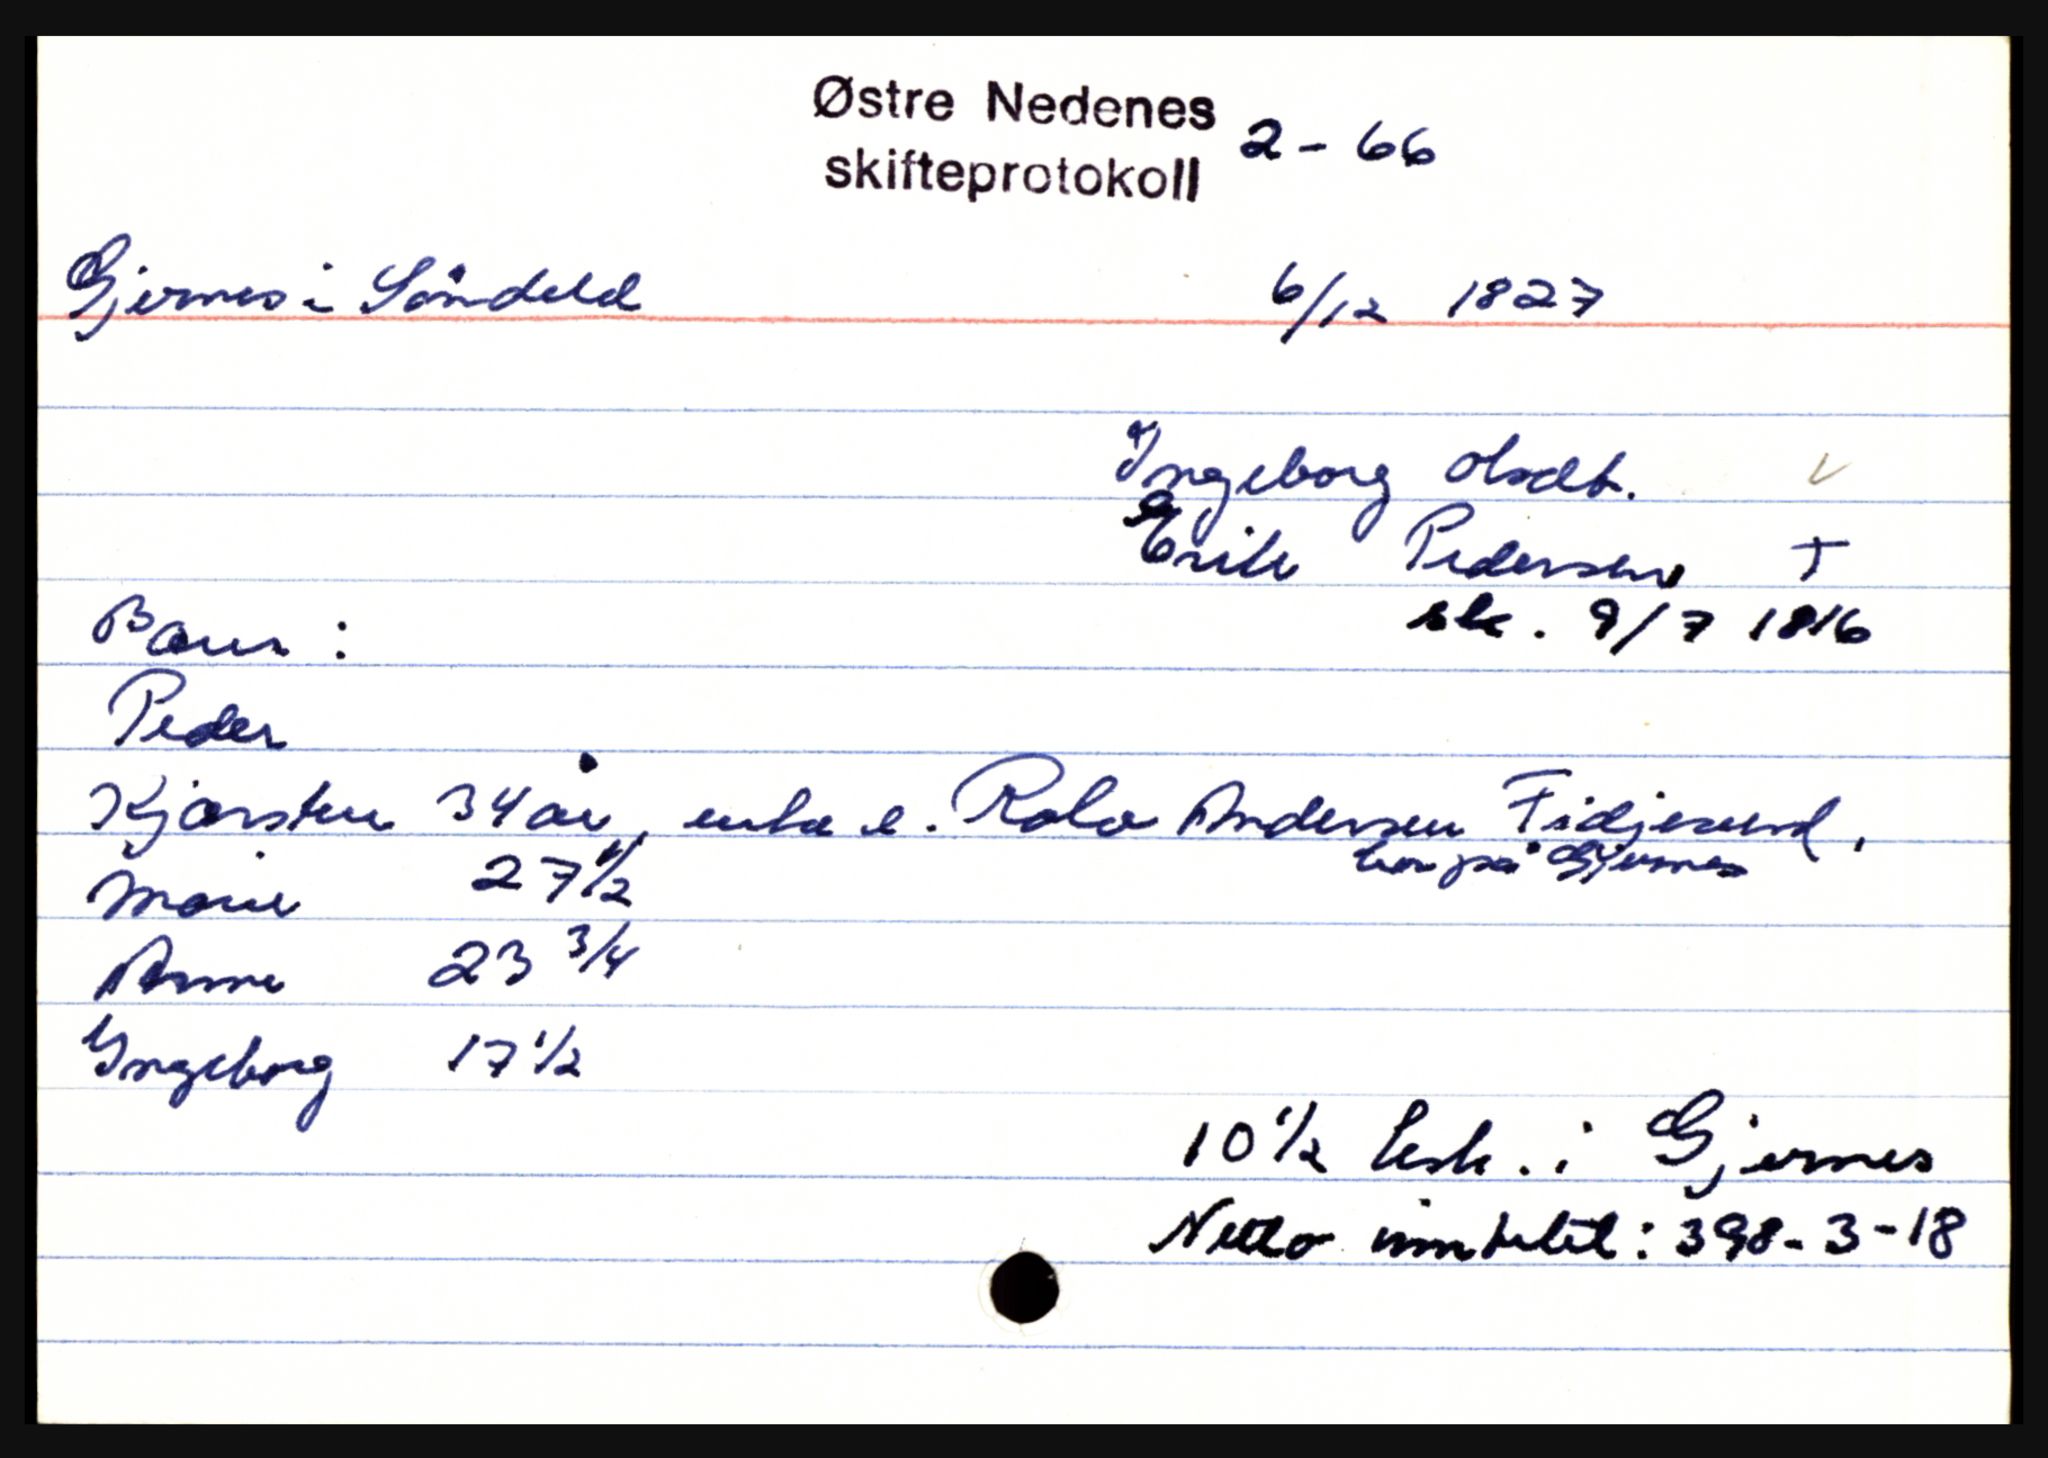 Østre Nedenes
skifteprotokoll 2-66
Gjernes i Søndeled 6/12 1827
Ingeborg Olsdt. v
Erik Pedersen †
sk. 9/7 1816
Barn:
Peder
Kjersten 34 år, enke e. Rola Andersen Fidjesund,
bor på Gjernes
Marie 27 1/2
Anne 23 3/4
Ingeborg 17 1/2
10 1/2 lesk. i Gjernes
Netto inntekt: 398-3-18